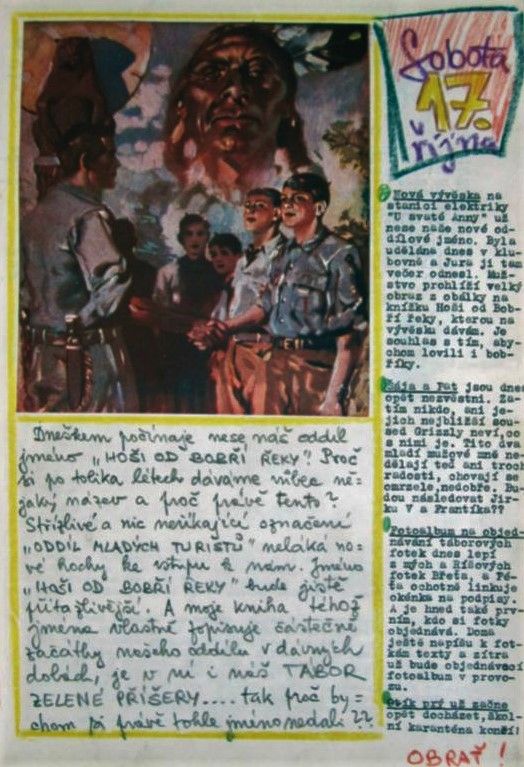 Sobota
17.
října
Nová vývěska na
stanici elektriky
"U svaté Anny" už
nese naše nové od-
dílové jméno. Byla
udělána dnes v klu-
bovně a Jura ji tam
večer odnesl. Muž-
stvo prohlíží velký
obraz z obálky na
knížku Hoši od Bob-
ří řeky, kterou na
vývěsku dávám. Je
souhlas s tím, aby-
chom lovili i bob-
říky.
a Pat jsou dnes
opět nezvěstní. Za-
tím nikdo, ani je-
jich nejbližší sou-
sed Grizzly neví, co
s nimi je. Tito dva
mladí mužové mně ne-
dělají teď ani troch
radosti, chovají se
omrzele, nedobře. Bu-
dou následovat Jir-
ku V a Frantíka??
Fotoalbum na objed-
návání táborových
fotek dnes lepí
z mých a Ríšových
fotek Břeťa, a Pé-
ťa ochotně linkuje
okénka na podpisy.
A je hned také prv-
ním, kdo si fotky
objednává. Doma
ještě napíšu k fot-
kám texty a zítra
už bude objednávací
fotoalbum v provo-
zu.
prý už začne
opět docházet, škol-
ní karanténa končí!
OBRAŤ !
Dneškem počínaje nese náš oddíl
jméno "HOŠI OD BOBŘÍ ŘEKY"! Proč
si po tolika létech dáváme vůbec ně-
jaký název a proč právě tento?
Střízlivé a nic neříkající označení
"ODDÍL MLADÝCH TURISTŮ" neláká no-
vé hochy ke vstupu k nám. Jméno
"HOŠI OD BOBŘÍ ŘEKY" bude jistě
přitažlivější. A moje kniha téhož
jména vlastně popisuje částečně
začátky našeho oddílu v dávných
dobách, je v ní i náš TÁBOR
ZELENÉ PŘÍŠERY.... tak proč by=
chom si právě tohle jméno nedali ??